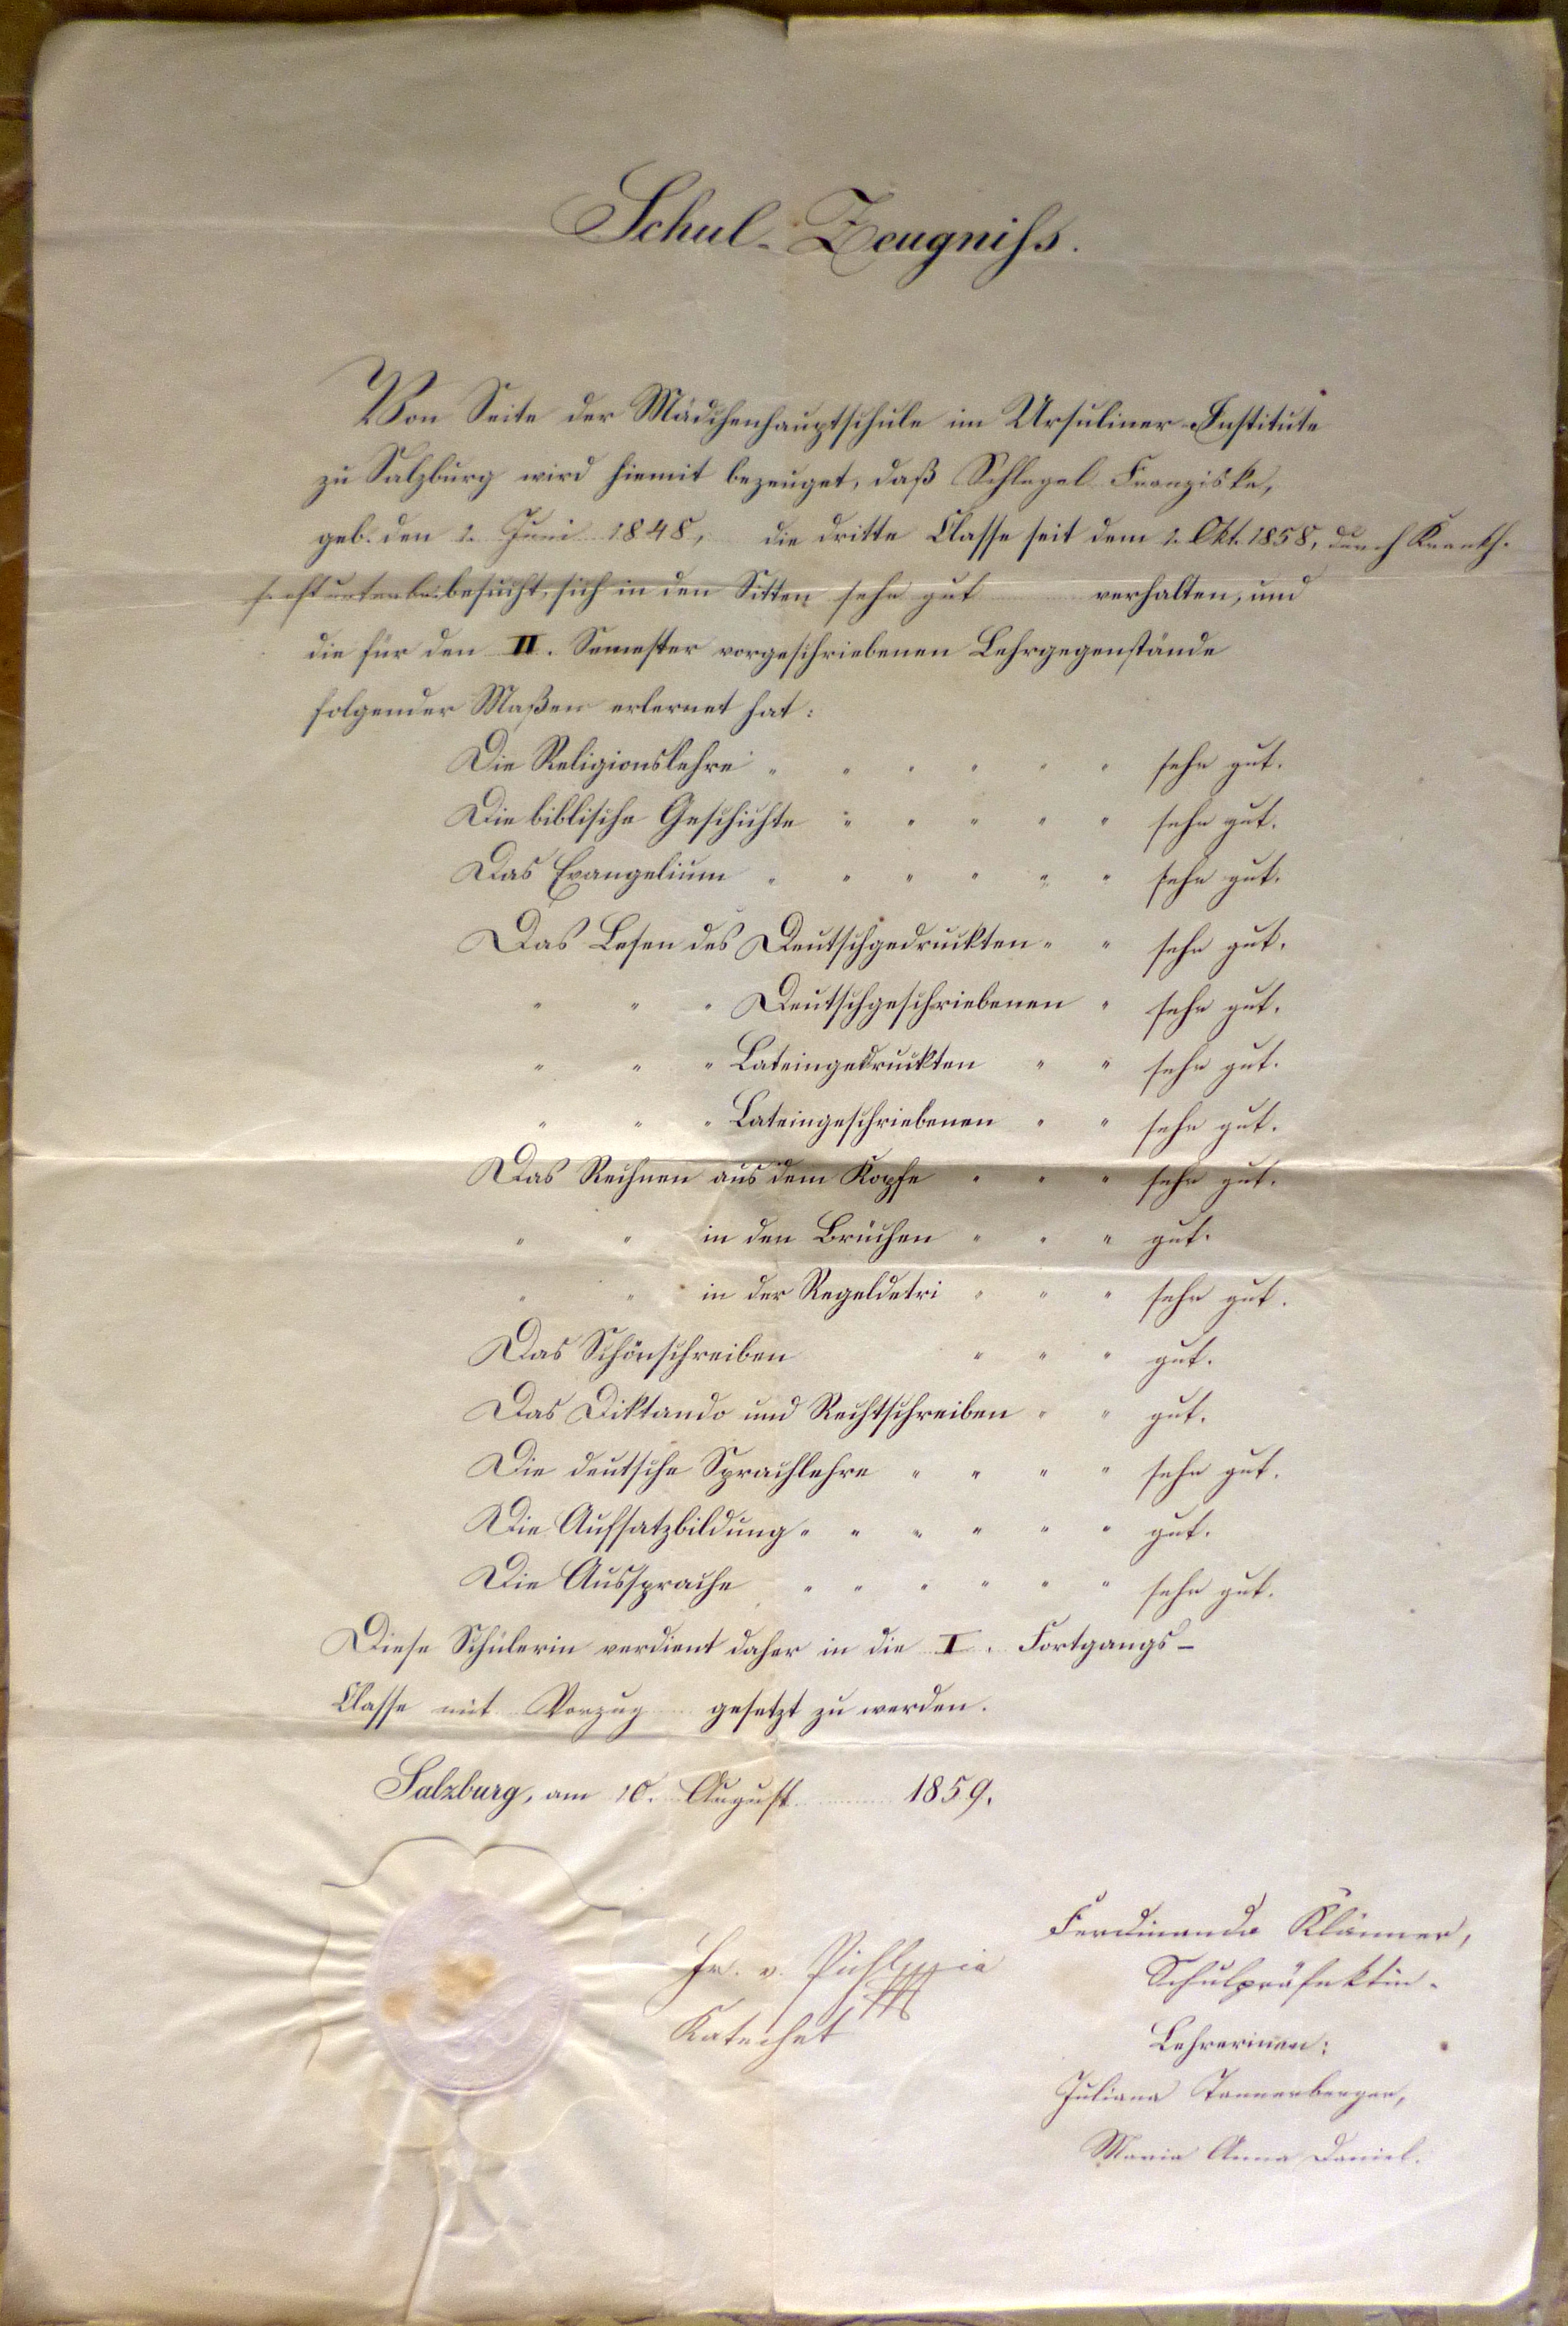 Schul-Zeugniss.
Von Seite der Mädchenhauptschule im Ursuliner-Institute
zu Salzburg wird hiemit bezeuget, daß Schlegel Franziska,
geb. den 2. Juni 1848, die dritte Classe seit dem 2. Okt. 1858, durch Krankh.
oft unterbr. besucht, sich in den Sitten sehr gut verhalten, und
die für den II. Semester vorgeschriebenen Lehrgegenstände
folgender Maßen erlernet hat:
Die Religionslehre " " " " " " sehr gut.
Die biblische Geschichte " " " " " sehr gut.
Das Evangelium " " " " " " sehr gut.
Das Lesen des Deutschgedruckten " " sehr gut.
" " " Deutschgeschriebenen " sehr gut.
" " " Lateingedruckten " " sehr gut.
" " " Lateingeschriebenen " " sehr gut.
Das Rechnen aus dem Kopfe " " " sehr gut.
" " in den Brüchen " " " gut.
" " in der Regeldetri " " " sehr gut.
Das Schönschreiben " " " gut.
Das Diktando und Rechtschreiben " " gut.
Die deutsche Sprachlehre " " " " sehr gut.
Die Aufsatzbildung " " " " " " gut.
Die Aussprache " " " " " " sehr gut.
Diese Schülerin verdient daher in die I. Fortgangs-
Classe mit Vorzug gesetzt zu werden.
Salzburg, am 10. August 1859.
Ferdinanda Klänner,
Schulpräfektin.
Katechet
Lehrerinen:
Juliana Tannenberger,
Maria Anna Daniel.